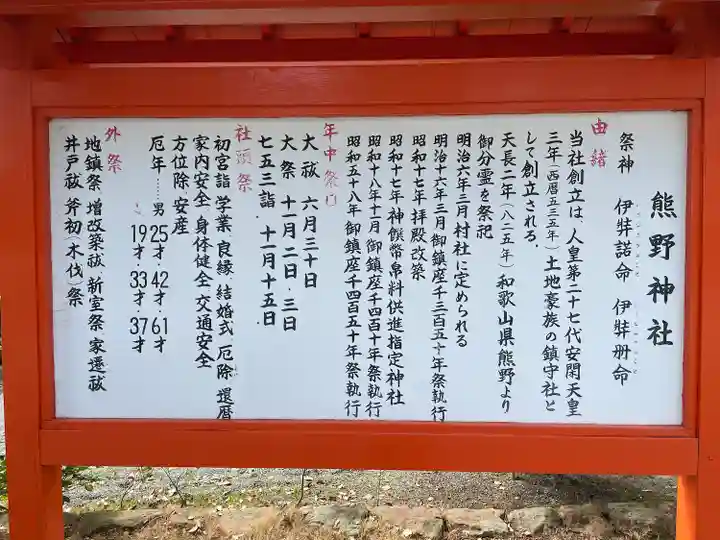 熊野神社
祭神 伊弉諾命 伊弉冊命
由緒
当社創立は、人皇第二十七代安閑天皇
三年(西暦五三五年)土地豪族の鎮守社と
して創立される。
天長二年(八二五年)和歌山県熊野より
御分霊を祭祀
明治六年三月村社に定められる
明治十六年三月御鎮座千三百五十年祭執行
昭和十七年拝殿改築
昭和十七年神饌幣帛料供進指定神社
昭和十八年十一月御鎮座千四百十年祭執行
昭和五十八年御鎮座千四百五十年祭執行
年中祭日
大祓 六月三十日
大祭 十一月二日・三日
七五三詣・十一月十五日
社頭祭
初宮詣・学業・良縁・結婚式・厄除・還暦
家内安全・身体健全・交通安全
方位除・安産
厄年……男 25才・42才・61才
19才・33才・37才
外祭
地鎮祭・増改築祓・新室祭・家遷祓
井戸祓・斧初(木伐)祭